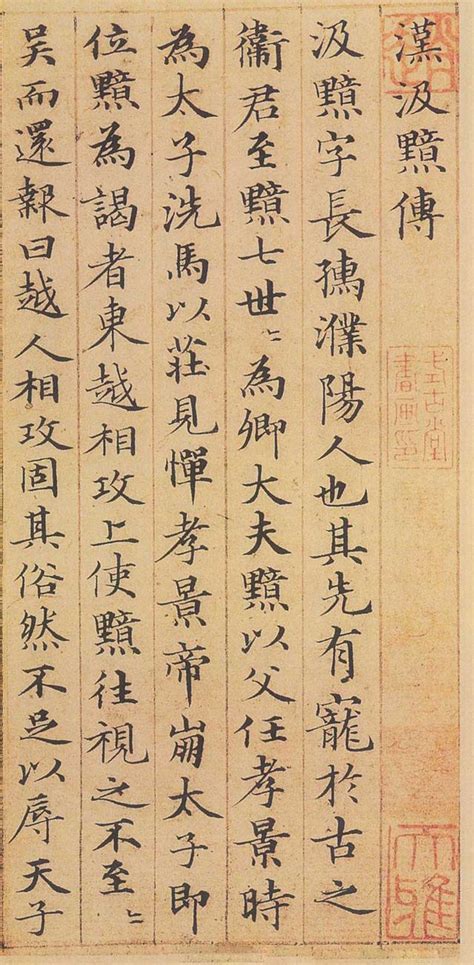 漢汲黯傳
汲黯字長孺濮陽人也其先有寵於古之
衞君至黯七世〻為卿大夫黯以父任孝景時
為太子洗馬以莊見憚孝景帝崩太子即
位黯為謁者東越相攻上使黯往視之不至〻
吳而還報曰越人相攻固其俗然不足以辱天子